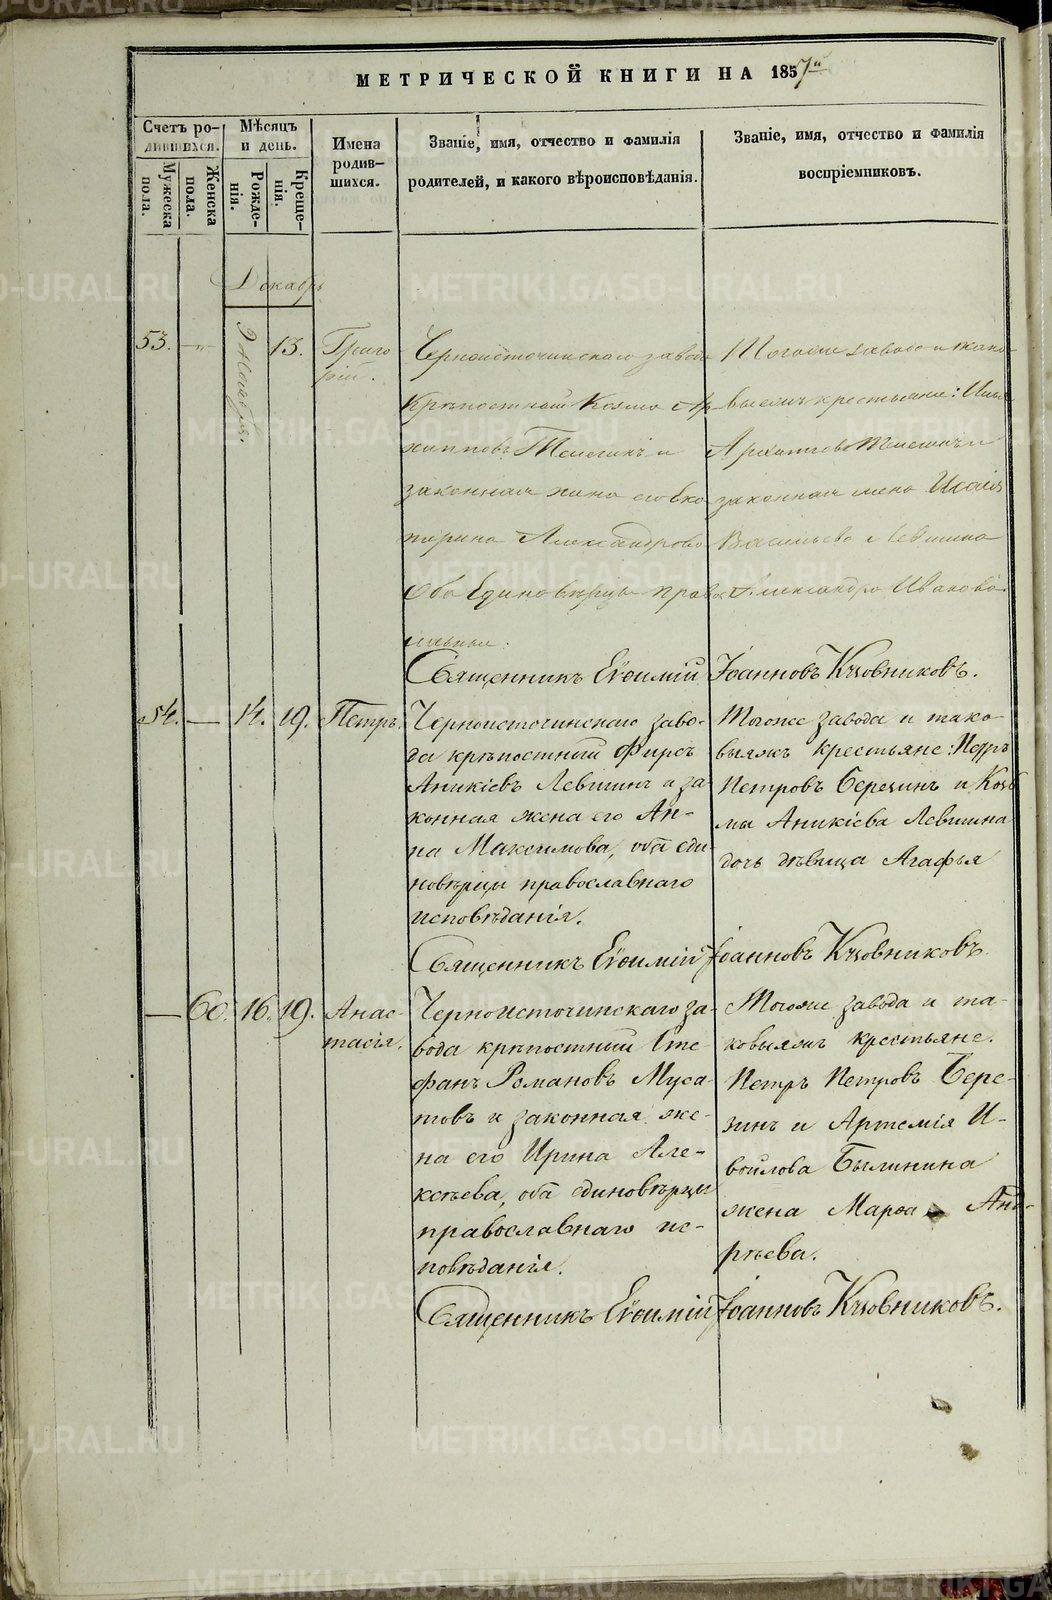 МЕТРИЧЕСКОЙ КНИГИ НА 1857й
Счетъ ро-
дившихся.
Мужеска пола.
Женска пола.
Мѣсяцъ
и день.
Рожде-
нія.
Креще-
нія.
Имена
родив-
шихся.
Званіе, имя, отчество и фамилія
родителей, и какого вѣроисповѣданія.
Званіе, имя, отчество и фамилія
воспріемниковъ.
Декабрь
53. 13. Григо
рій.
Черноисточинскаго завода
Крѣпостный Козма Ар
хиповъ и
законная жена его Ека
терина Александрова
Оба Единовѣрцы правос
лавные.
Тогоже завода и тако
выежъ крестьяне:
Архипова
законная жена
Васильева Левшина
Александра Иванова.
Священникъ Евѳимій Іоанновъ Кудовниковъ.
54. — 14. 19. Петръ.
Черноисточинскаго заво-
да крѣпостный Фирсъ
Аникіевъ Левшинъ и за
конная жена его Ан-
на Максимова, оба еди
новѣрцы православнаго
исповѣданія.
Тогоже завода и тако-
выяжъ крестьяне: Петръ
Петровъ Березинъ и Козь
мы Аникіева Левшина
дочь дѣвица Агафья
Священникъ Евѳимій Іоанновъ Кудовниковъ.
— 60. 16. 19. Анас-
тасія.
Черноисточинскаго за-
вода крѣпостный Сте-
фанъ Романовъ Муса-
товъ и законная же-
на его Ирина Але-
ксѣева, оба единовѣрцы
православнаго ис-
повѣданія.
Тогоже завода и та-
ковыяжъ крестьяне.
Петръ Петровъ Бере-
зинъ и Артемія И-
войлова Былинина
жена Марѳа Анд-
рѣева.
Священникъ Евѳимій Іоанновъ Кудовниковъ.
METRIKI.GASO-URAL.RU